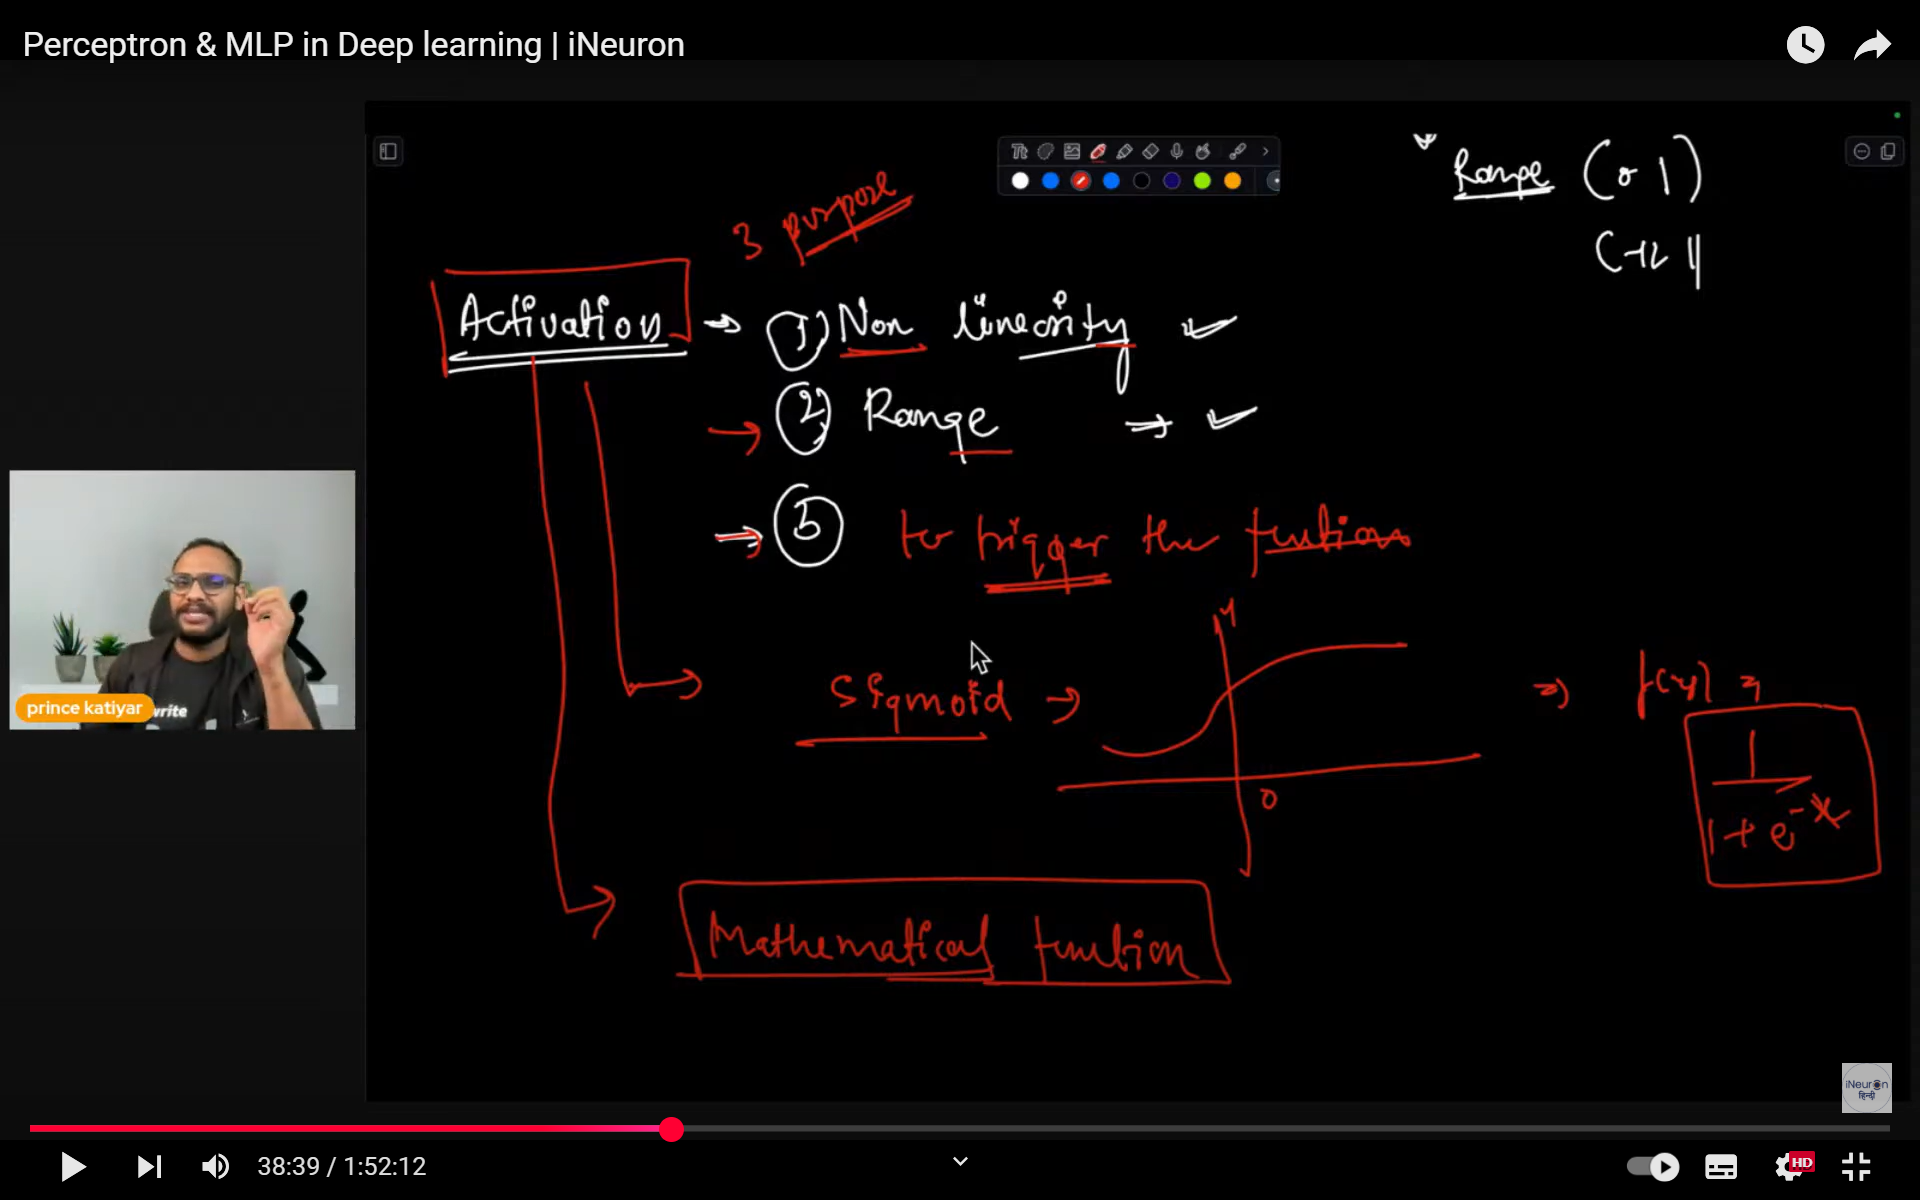 Perceptron & MLP in Deep learning | iNeuron
Range (0 1)
3 purpose
Activation → 1) Non linearity
2) Range
3 to trigger the
Sigmoid →
y
0
⇒ f(x) =
1
1 + e^-x
Mathematical function
prince katiyar
write
iNeuron
हिन्दी
38:39 / 1:52:12
HD